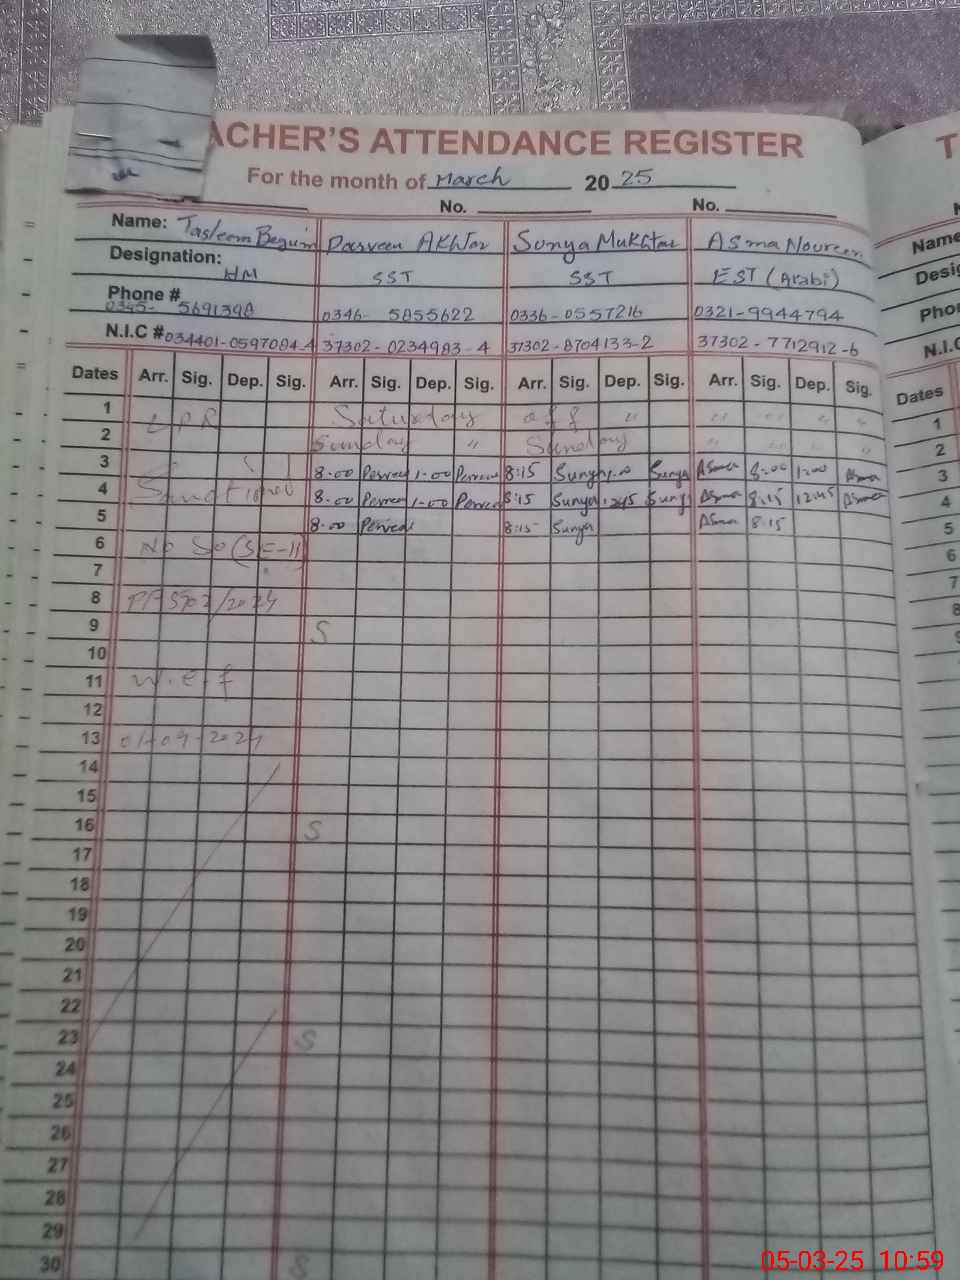 TEACHER'S ATTENDANCE REGISTER
For the month of March 20 25
No. No.
Name: Tasleem Begum Parveen Akhtar Sonya Mukhtar Asma Noureen
Designation: HM SST SST EST (Arabi)
Phone # 0345- 5691398 0346- 5855622 0336-0557216 0321-9944794
N.I.C # 034401-0597084-4 37302-0234983-4 37302-8704133-2 37302-7712912-6
Dates Arr. Sig. Dep. Sig. Arr. Sig. Dep. Sig. Arr. Sig. Dep. Sig. Arr. Sig. Dep. Sig.
1 LPR Saturday off " " " "
2 Sunday " Sunday " "
3 8.00 Perveen 1.00 Perveen 8:15 Sunya 1.00 Sunya Asma 8:00 1:00 Asma
4 Sanctioned 8.00 Perveen 1.00 Perveen 8:15 Sunya 12:45 Sunya Asma 8:15 12:45 Asma
5 8.00 Perveen 8:15 Sunya Asma 8:15
6 No SO (SE-II)
7
8 /2024
9 S
10
11 W.e.f
12
13 01-09-2024
14
15
16 S
17
18
19
20
21
22
23 S
24
25
26
27
28
29
30 S
T
Name
Desig
Phon
N.I.C
Dates
1
2
3
4
5
6
7
8
05-03-25 10:59